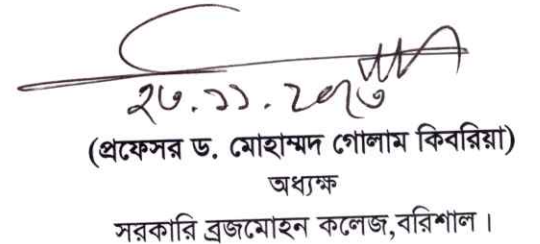 ২৩.১১.২০২৩
(প্রফেসর ড. মোহাম্মদ গোলাম কিবরিয়া)
অধ্যক্ষ
সরকারি ব্রজমোহন কলেজ,বরিশাল।